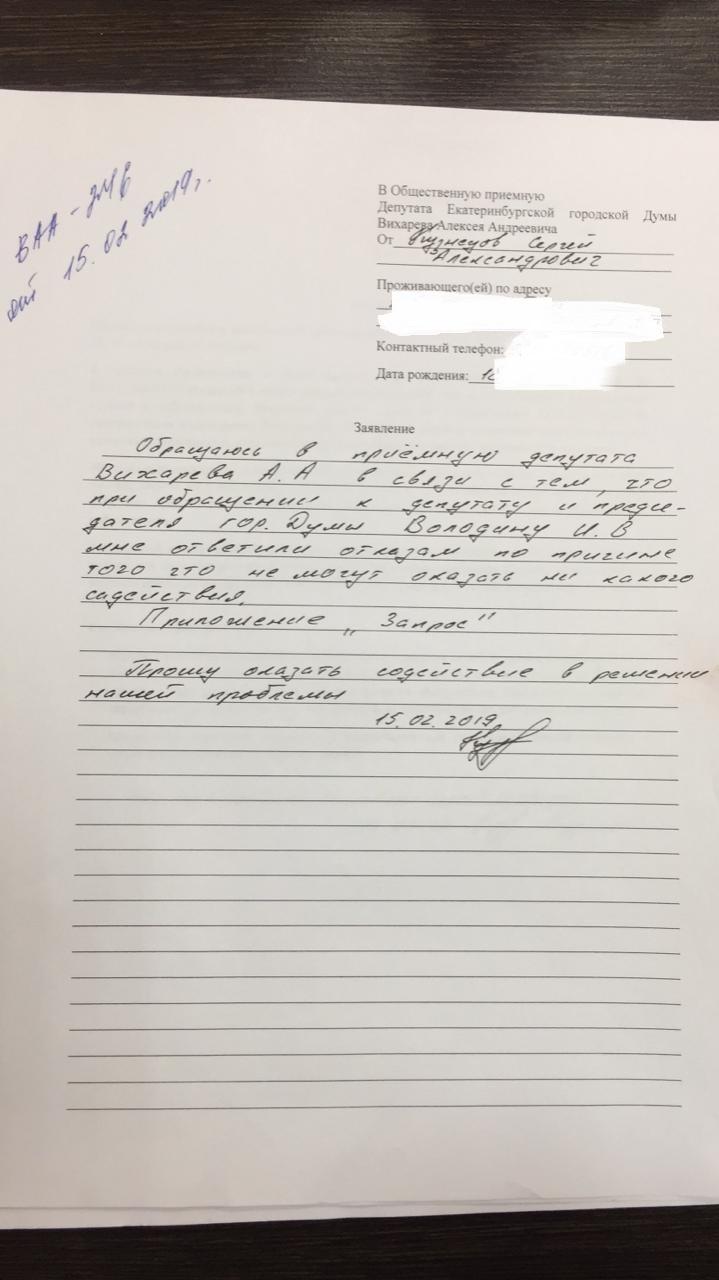 ВАА - 
от 15.02 2019г.
В Общественную приемную
Депутата Екатеринбургской городской Думы
Вихарева Алексея Андреевича
От Кузнецов Сергей
Александрович
Проживающего(ей) по адресу
Контактный телефон:
Дата рождения:
Заявление
Обращаюсь в приёмную депутата
Вихарева А.А в связи с тем, что
при обращении к депутату и предсе-
дателя гор. Думы Володину И.В
мне ответили отказам по причине
того что не могут оказать ни какого
садействия.
Приложение „Запрос"
Прошу оказать содействие в решении
нашей проблемы
15.02.2019